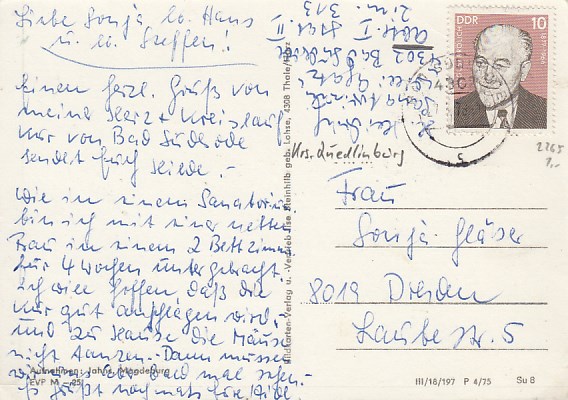 Liebe Sonja, lb. Hans
u. lb. Steffen!
Einen herzl. Gruß von
meiner Herz & Kreislauf
Kur von Bad Suderode
sendet Euch Hilde.-
Wie in einem Sanatorium
bin ich mit einer netten
Frau in einem 2 Bettzimmer
für 4 Wochen untergebracht.
Ich will hoffen daß die
Kur gut anschlagen wird,
und zu Hause die Mäuse
nicht tanzen.- Dann müssen
wir uns aber bald mal sehen.-
Es grüßt nochmals Eure Hilde
Aufnahmen: Jahre, Magdeburg
EVP M -,25
Bildkarten-Verlag u. -Vertrieb Ilse Steinhilb geb. Lohse, 4308 Thale/Harz
4302 Bad Suderode
Abt. I
Zim. 313
Krs. Quedlinburg
DDR
10
430
Frau
Sonja Gläser
8019 Dresden
Laube str. 5
2265
1,-
III/18/197 P 4/75 Su 8